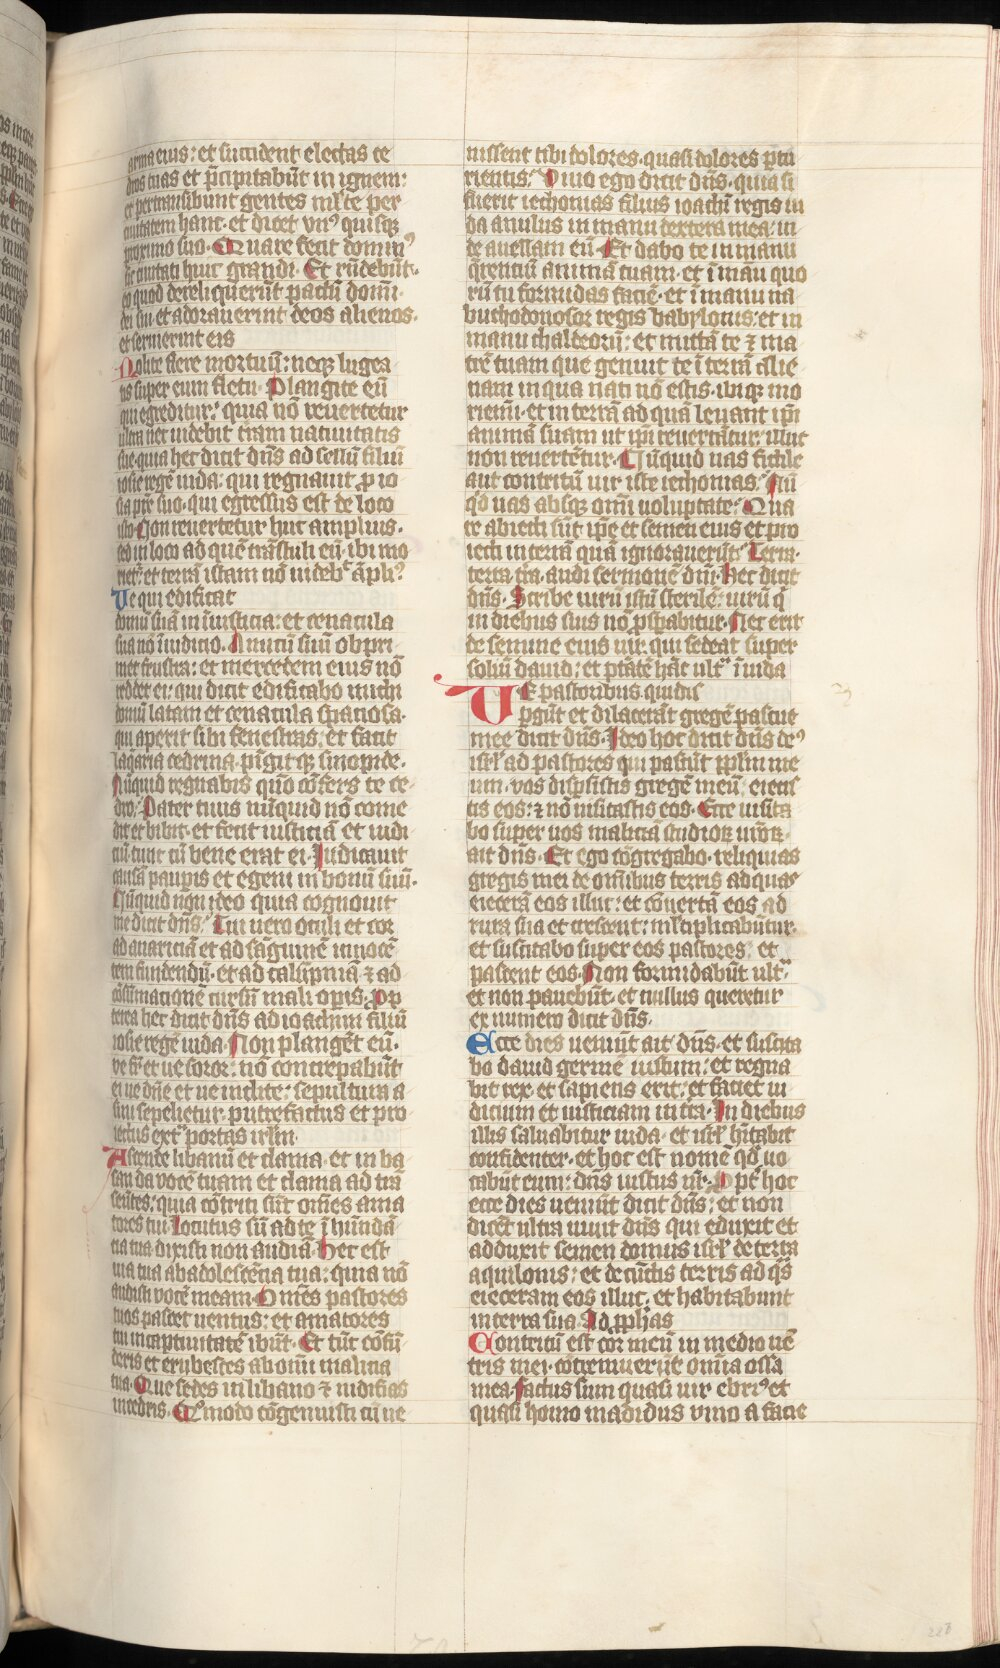 arma eius: et succident electas ce
dros tuas et p̄cipitabūt in ignem:
et pertransibunt gentes mlte per
ciuitatem hanc· et dicet vnꝰ quisqꝫ
proximo suo· Quare fecit dominꝰ
sic ciuitati huic grandi· Et rn̄debūt·
eo quod dereliquerūt pactū domī·
dei sui et adorauerint deos alienos·
et seruierint eis
Nolite flere mortuū: neqꝫ lugea
tis super eum fletu· Plangite eū
qui egreditur: quia nō reuertetur
ultra nec uidebit tram natiuitatis
sue· quia hec dicit dn̄s ad sellū filiū
iosie regē iuda: qui regnauit ꝓ io
sia pr̄e suo· qui egressus est de loco
isto· Non reuertetur huc amplius·
sed in loco ad quē trāstuli eū· ibi mo
riet̄: et terrā istam nō uidebᵗ āpliꝰ
Ve qui edificat
domū suā in iiusticia: et cenacula
sua nō ī iudicio· Amicū suū obpri
met frustra: et mercedem eius nō
reddet ei: qui dicit edificabo michi
domū latam et cenacula spaciosa·
qui aperit sibi fenestras· et facit
laqaria cedrina· pīgitqꝫ sinopide·
Nūquid regnabis quō cōfers te ce
dro: Pater tuus nūquid nō come
dit et bibit· et fecit iusticiā et iudi
ciū· tunc cū bene erat ei· Iudicauit
causā paupis et egeni in bonū suū·
Nūquid non ideo quia cognouit
me dicit dn̄s: Tui uero oculi et cor
ad auariciā et ad sāguinē innocē
tem fundendū· et ad calūpniā ⁊ ad
cōsūmacionē cursū mali operis· Prop
terea hec dicit dn̄s ad ioachim filiū
iosie regē iuda· Non plangēt eū·
ve fr̄ et ue soror: nō concrepabūt
ei ue dn̄e et ue inclite: sepultura a
sini sepelietur· putrefactus et pro
iectus ext̄ portas irl̄m·
Ascende libanū et clama· et in ba
san da vocē tuam et clama ad tra
seūtes: quia cōtriti sūt om̄es ama
tores tui· Locutus sū ad te ī hūndā
cia tua· dixisti non audiā· Hec est
uia tua ab adolescēcia tua: quia nō
audisti vocē meam· Omēs pastores
tuos pascet uentus: et amatores
tui in captiuitatē ibūt· Et tūc cōfū
deris et erubesces ab omī malicia
tua· Que sedes in libano ⁊ nidificas
in cedris· Quomodo cōgemuisti cū ue
nissent tibi dolores· quasi dolores ptu
rientis: Viuo ego dicit dn̄s· quia si
fuerit iechonias filius ioachī regis iu
da anulus in manu dextera mea: in
de auellam eū· Et dabo te in manu
querentiū animā tuam· et ī mau quo
rū tu formidas faciē· et ī manu na
buchodonosor regis babylonis: et in
manu chaldeorū: et mittā te ⁊ ma
trē tuam que genuit te ī terrā alie
nam in qua nati nō estis· ibiqꝫ mo
riemī· et in terrā ad quā leuant ip̄i
animā suam ut ip̄i reuertātur: illuc
non reuertētur· Nūquid uas fictile
aut contritū uir iste iechonias: Nū
qd̄ uas absqꝫ omī voluptate: Qua
re abiecti sūt ip̄e et semen eius et pro
iecti in terrā quā ignorauerūt: Terra·
terra· tra· audi sermonē dn̄i· Hec dicit
dn̄s· Scribe uirū istū sterilē: uirū q̄
in diebus suis nō ꝓspabitur· Nec erit
de semine eius uir· qui sedeat super
soliū dauid: et ptātē hāt ultᵃ ī iuda
VE pastoribus· qui dis
pgūt et dilacerāt gregē pascue
mee dicit dn̄s· Ideo hec dicit dn̄s deꝰ
isrl̄ ad pastores qui pascūt ppl̄m me
um· vos dispsistis gregē meū: eiecis
tis eos: ⁊ nō uisitastis eos· Ecce uisita
bo super uos malicia studioꝝ ur̄oꝝ
ait dn̄s· Et ego cōgregabo· reliquias
gregis mei de om̄ibus terris ad quas
eiecerā eos illuc: et cōuertā eos ad
rura sua et crescent: ml̄tiplicabūtur·
et suscitabo super eos pastores: et
pascent eos· Non formidabūt ultᵃ
et non pauebūt· et nullus queretur
ex numero dicit dn̄s·
Ecce dies ueniūt ait dn̄s· et suscita
bo dauid germē iustum: et regna
bit rex· et sapiens erit: et faciet iu
dicium et iusticiam in tra· In diebus
illis saluabitur iuda· et isrl̄ hītabit
confidenter· et hoc est nomē qd̄ uo
cabūt eum: dn̄s iustus nr̄· Ppt̄ hoc
ecce dies ueniūt dicit dn̄s: et non
dicēt ultra viuit dn̄s qui eduxit et
adduxit semen domus isrl̄ de terra
aquilonis: et de cūctis terris ad q̄s
eieceram eos illuc: et habitabunt
in terra sua· Ad ꝓph̄as
Contritū est cor meū in medio uē
tris mei· cōtremuerūt omīa ossa
mea· factus sum quasi uir ebriꝰ et
quasi homo madidus vino a facie